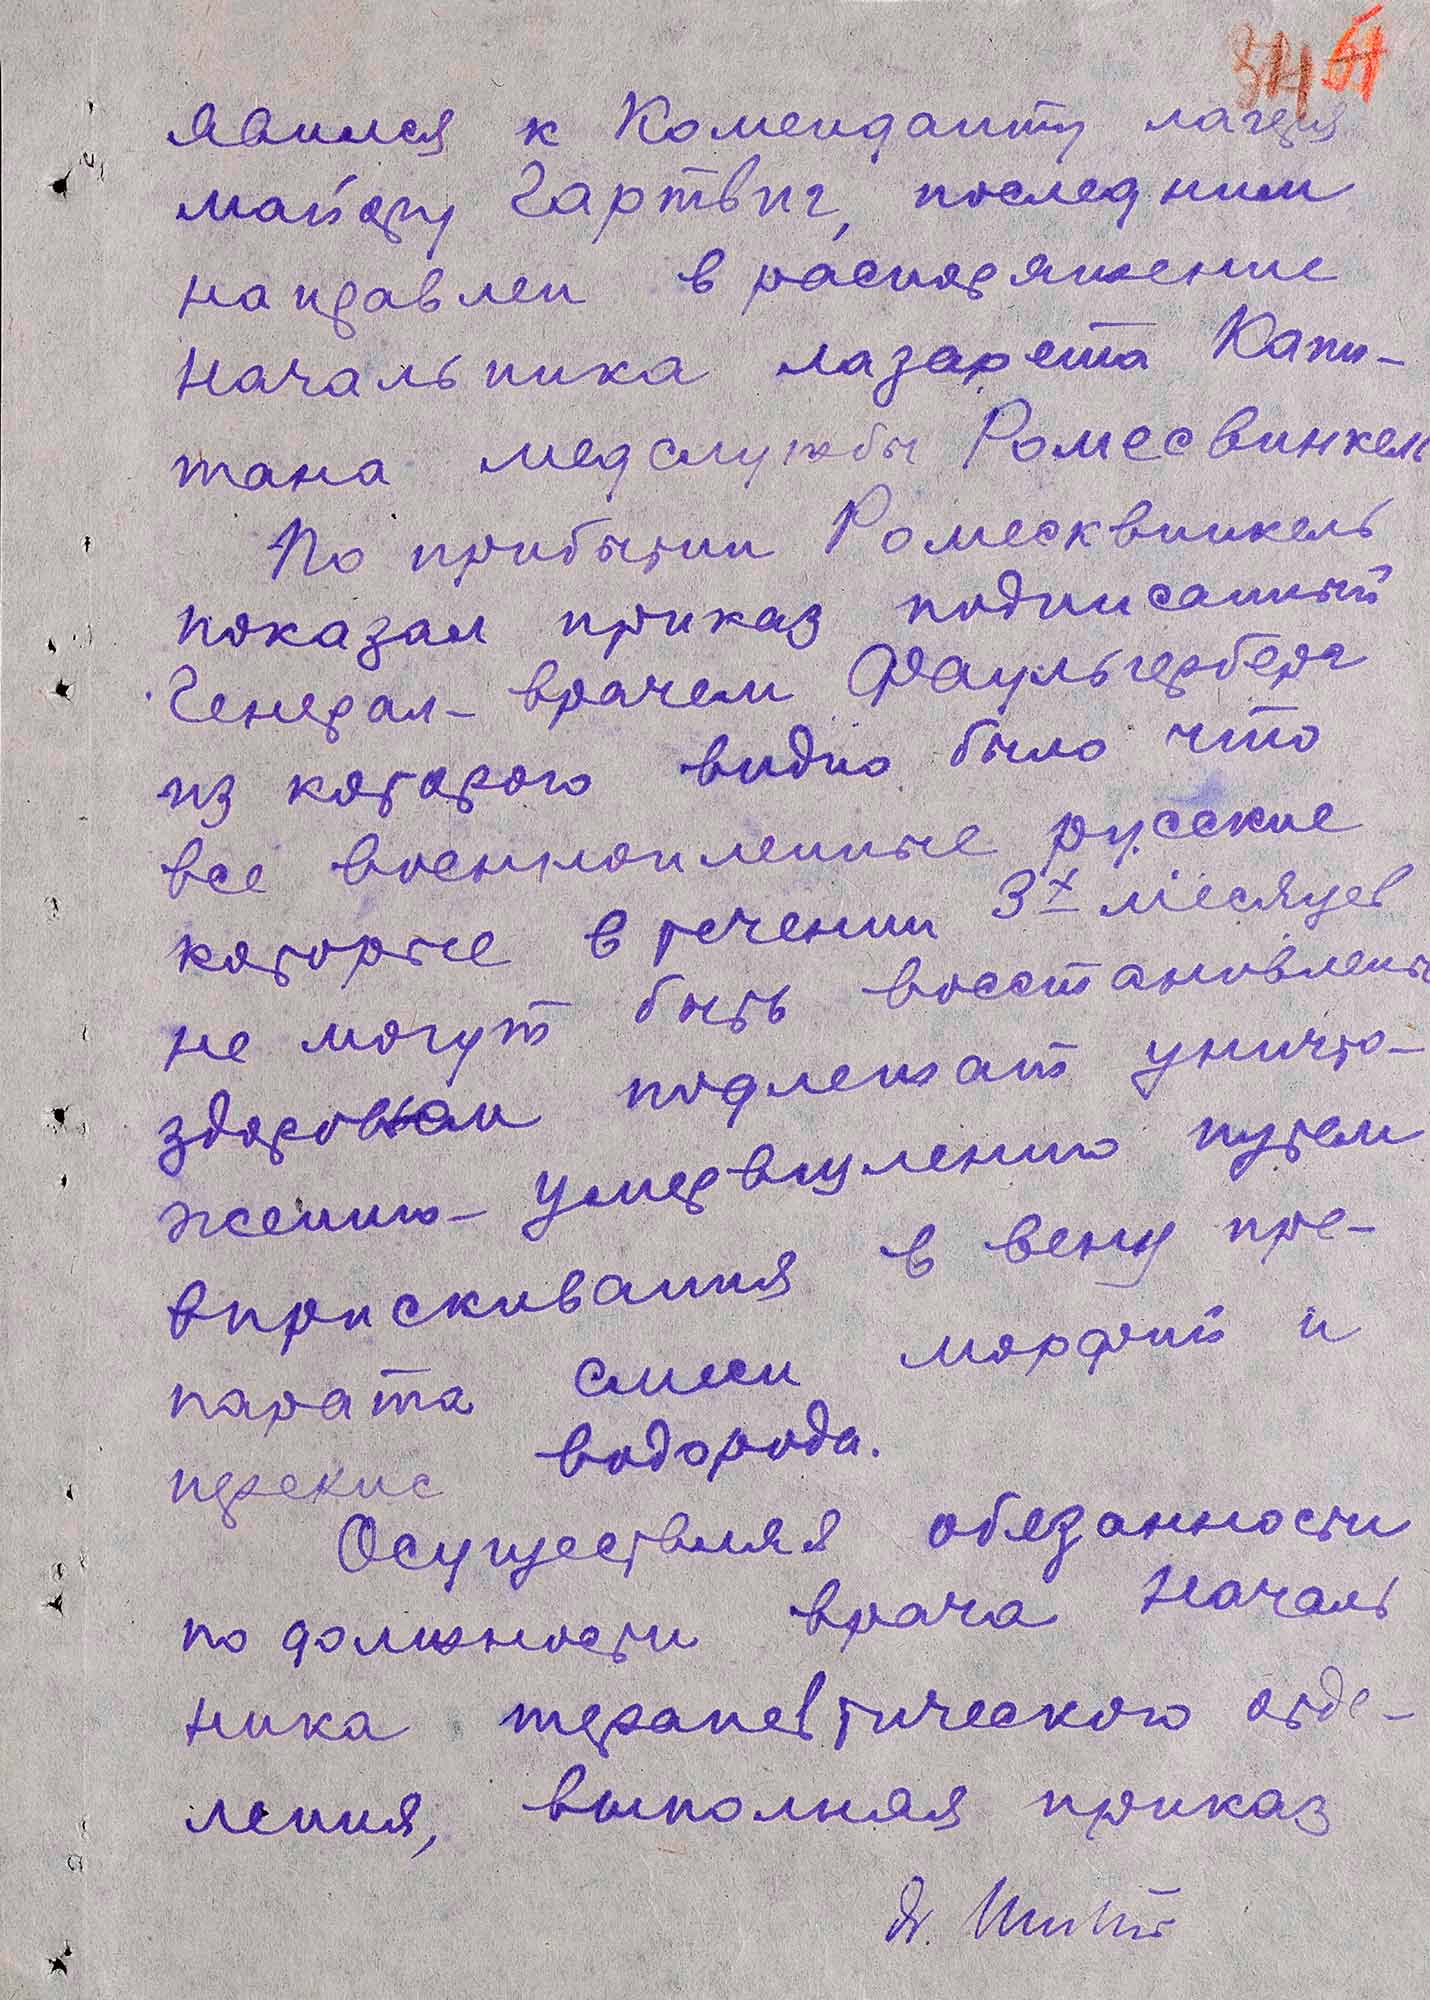 54 51
явился к Коменданту лагеря
майору Гартвиг, последним
направлен в распоряжение
начальника лазарета Капи-
тана медслужбы Ромесвинкель
По прибытии Ромесквинкель
показал приказ подписанный
Генерал-врачем Фаульгерберг
из которого видно было что
все военнопленные русские
которые в течении 3х месяцев
не могут быть восстановлены
здоровьем подлежат уничто-
жению- умервщлению путем
впрыскивания в вену пре-
парата смеси морфий и
перекис водорода.
Осуществляя обязанности
по должности врача началь
ника терапевтического отде-
ления, выполняя приказ